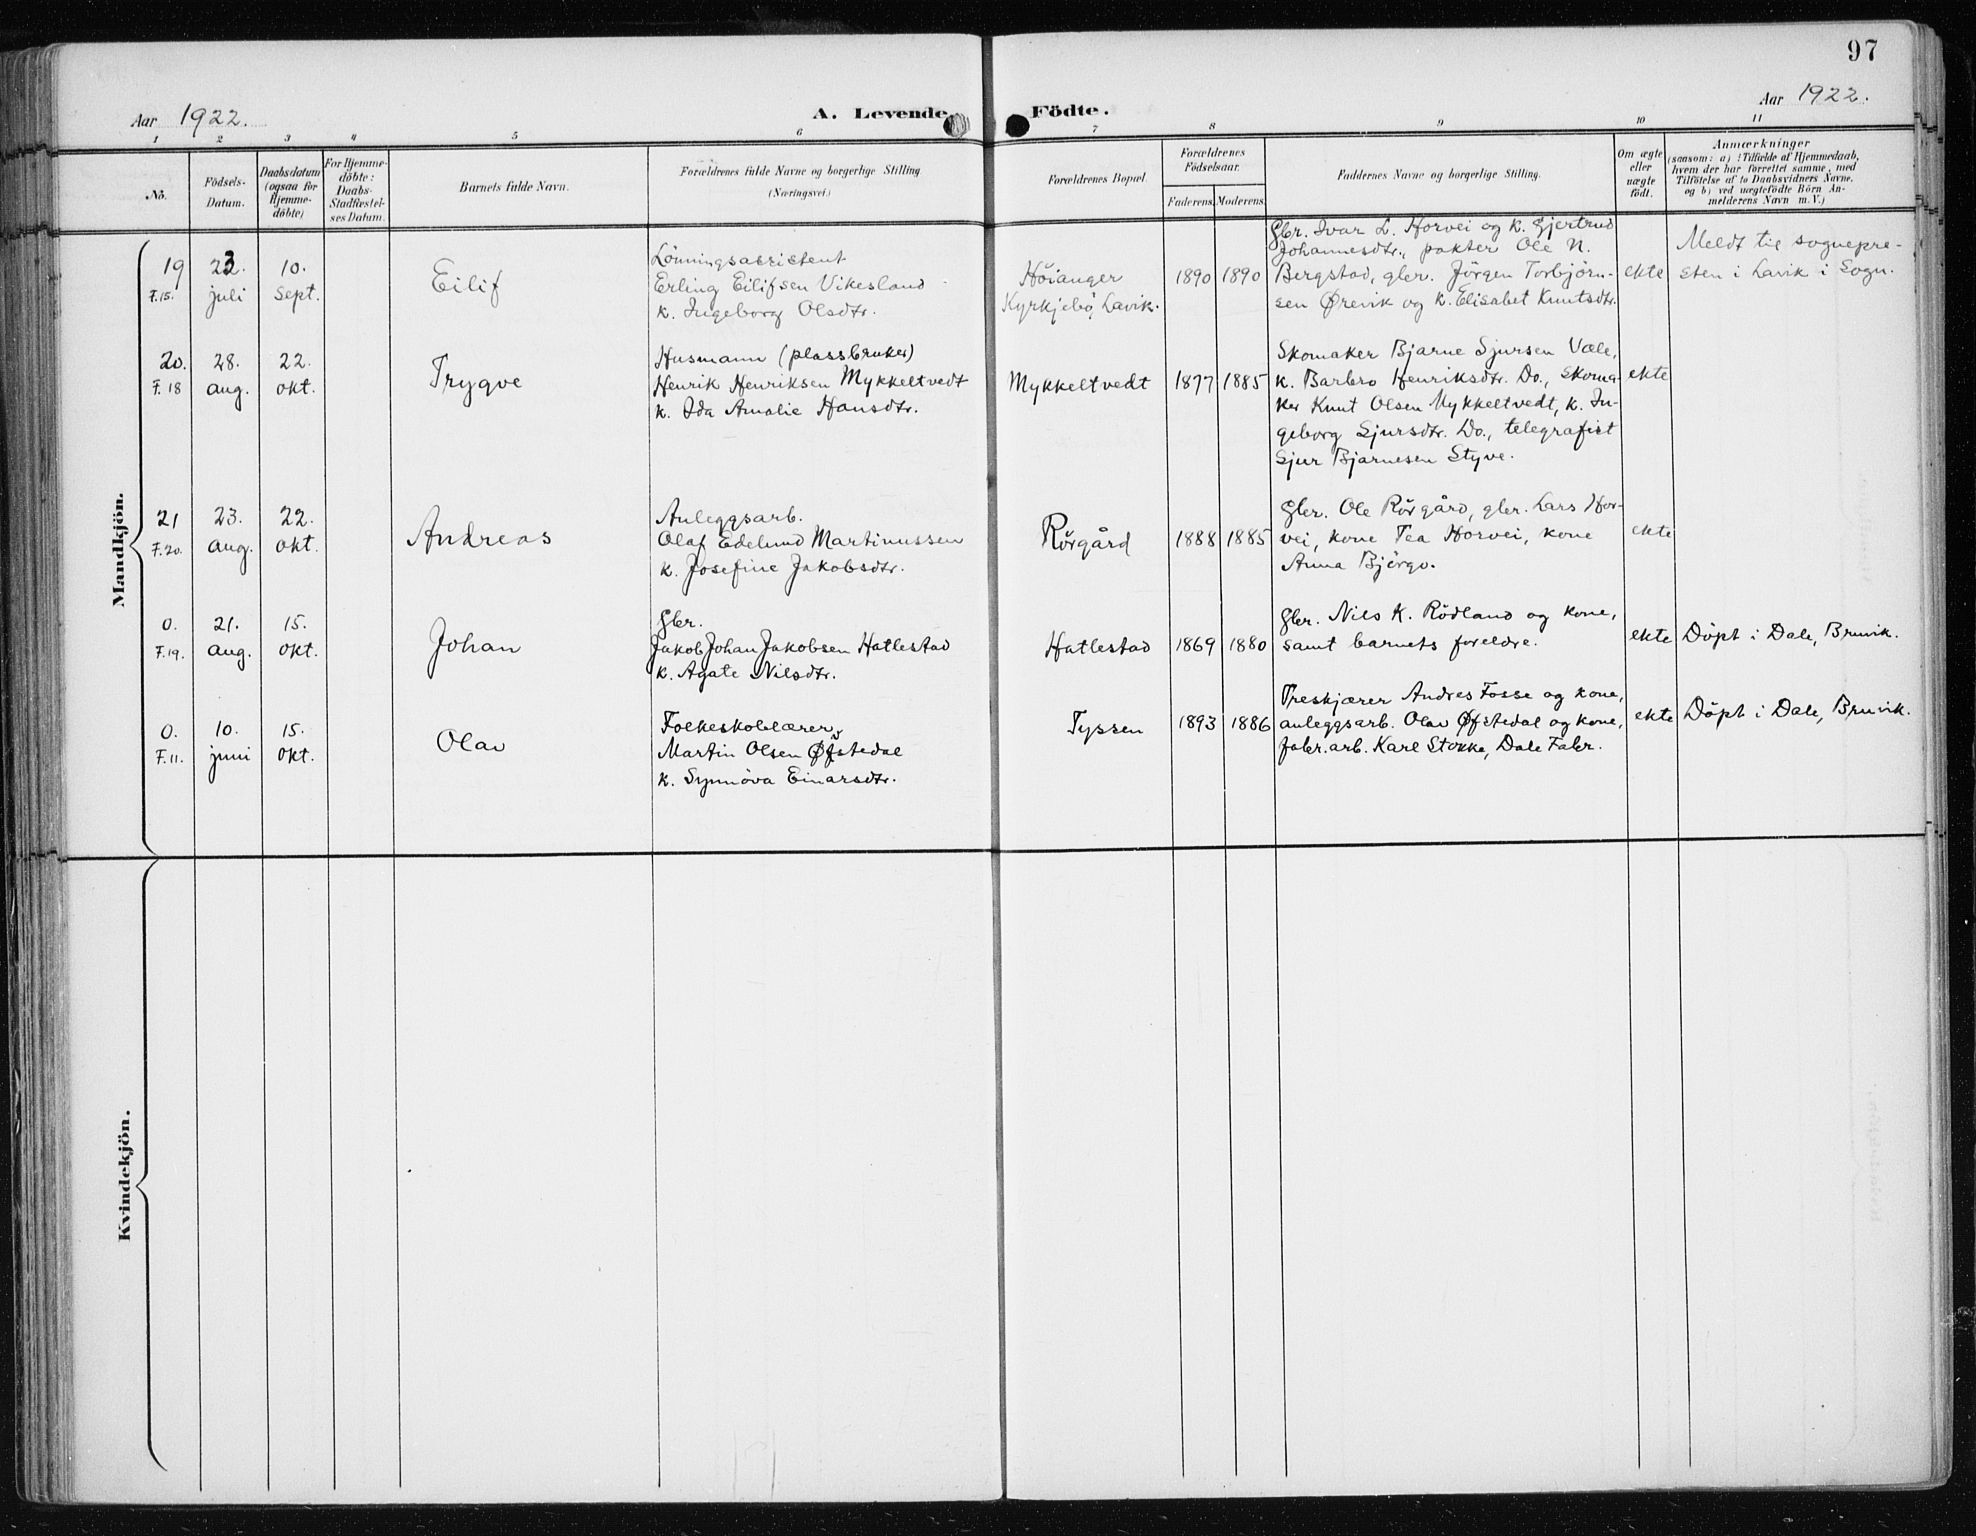 97
Aar 1922.
A. Levende Födte.
Aar 1922.
1 2 3 4 5 6 7 8 9 10 11
No.
Födsels-
Datum.
Daabsdatum
(ogsaa for
Hjemme-
döbte)
For Hjemme-
döbte:
Daabs-
Stadfæstel-
ses Datum.
Barnets fulde Navn.
Forældrenes fulde Navne og borgerlige Stilling
(Næringsvei.)
Forældrenes Bopæl.
Forældrenes
Födselsaar.
Faderens. Moderens.
Faddernes Navne og borgerlige Stilling.
Om ægte
eller
uægte
födt.
Anmærkninger
(saasom: a) i Tilfælde af Hjemmedaab,
hvem der har forrettet samme, med
Tilföielse af to Daabsvidners Navne,
og b) ved uægtefödte Börn An-
melderens Navn m. V.)
Mandkjön.
19
F.15.
23.
juli
10.
sept.
Eilif
Lönningsassistent
Erling Eilifsen Vikesland
k. Ingeborg Olsdtr.
Höianger
Kyrkjebö, Lavik.
1890 1890
Gbr. Ivar L. Horvei og k. Gjertrud
Johannesdtr., pakter Ole N.
Bergstad, gbr. Jörgen Torbjörn-
sen Ørevik og k. Elisabet Knutsdtr.
ekte
Meldt til sognepre-
sten i Lavik i Sogn.
20.
F.18
28.
aug.
22.
okt.
Trygve
Husmann (plassbruker)
Henrik Henriksen Mykkeltvedt
k. Ida Amalie Hansdtr.
Mykkeltvedt
1877 1885
Skomaker Bjarne Sjursen Væle,
k. Barbro Henriksdtr. Do., skoma-
ker Knut Olsen Mykkeltvedt, k. In-
geborg Sjursdtr. Do., telegrafist
Sjur Bjarnesen Styve.
ekte
21
F.20.
23.
aug.
22.
okt.
Andreas
Anleggsarb.
Olaf Edelund Martinussen
k. Josefine Jakobsdtr.
Rörgård
1888 1885
Gbr. Ole Rörgård, gbr. Lars Hor-
vei, kone Tea Horvei, kone
Anna Björgo.
ekte
0.
F.19.
21.
aug.
15.
okt.
Johan
Gbr.
Jakob Johan Jakobsen Hatlestad
k. Agate Nilsdtr.
Hatlestad
1869 1880
Gbr. Nils K. Rödland og kone,
samt barnets foreldre.
ekte
Döpt i Dale, Bruvik.
0.
F.11.
10.
juni
15.
okt.
Olav
Folkeskolelærer
Martin Olsen Øfstedal
k. Synnöva Einarsdtr.
Tyssen
1893 1886
Treskjærer Andres Fosse og kone,
anleggsarb. Olav Øfstedal og kone,
fabr.arb. Karl Stokke, Dale Fabr.
ekte
Döpt i Dale, Bruvik.
Kvindekjön.